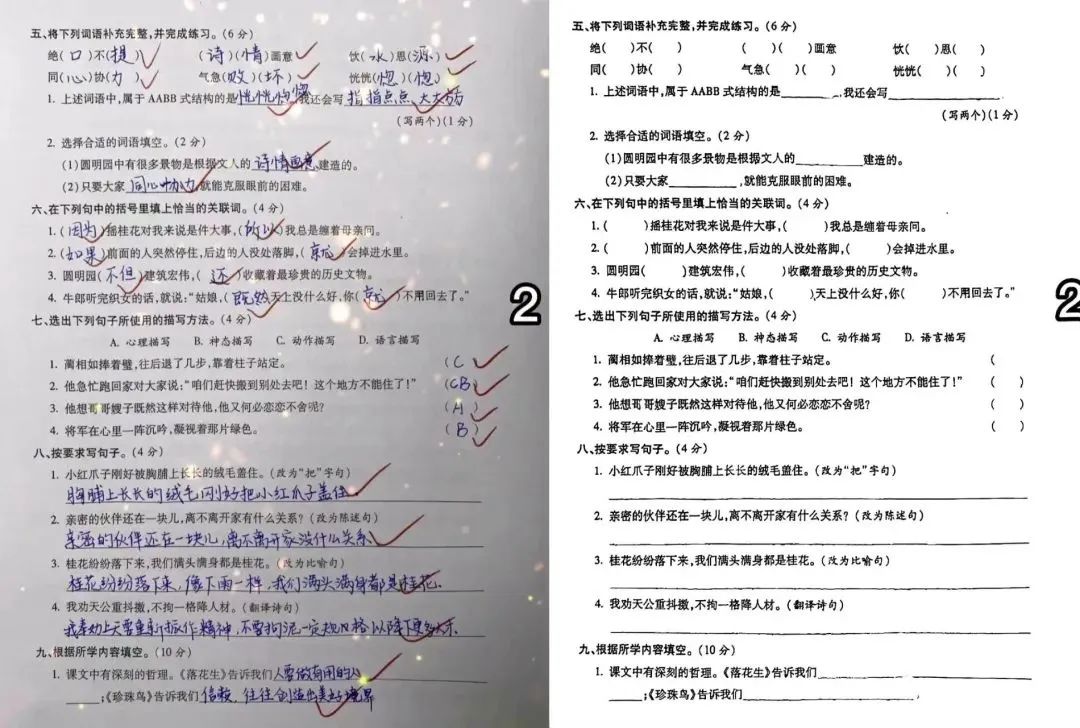 五、将下列词语补充完整,并完成练习。(6分)
绝(口)不(提) (诗)(情)画意 饮(水)思(源)
同(心)协(力) 气急(败)(坏) 恍恍(惚)(惚)
1. 上述词语中,属于AABB式结构的是恍恍惚惚,我还会写指指点点 大大方方
(写两个)(1分)
2. 选择合适的词语填空。(2分)
(1)圆明园中有很多景物是根据文人的诗情画意建造的。
(2)只要大家同心协力,就能克服眼前的困难。
六、在下列句中的括号里填上恰当的关联词。(4分)
1. (因为)摇桂花对我来说是件大事,(所以)我总是缠着母亲问。
2. (如果)前面的人突然停住,后边的人没处落脚,(就)会掉进水里。
3. 圆明园(不但)建筑宏伟,(还)收藏着最珍贵的历史文物。
4. 牛郎听完织女的话,就说:“姑娘,(既然)天上没什么好,你(就)不用回去了。”
七、选出下列句子所使用的描写方法。(4分)
A. 心理描写 B. 神态描写 C. 动作描写 D. 语言描写
1. 蔺相如捧着璧,往后退了几步,靠着柱子站定。 (C)
2. 他急忙跑回家对大家说:“咱们赶快搬到别处去吧!这个地方不能住了!” (CB)
3. 他想哥哥嫂子既然这样对待他,他又何必恋恋不舍呢? (A)
4. 将军在心里一阵沉吟,凝视着那片绿色。 (B)
八、按要求写句子。(4分)
1. 小红爪子刚好被胸脯上长长的绒毛盖住。(改为“把”字句)
胸脯上长长的绒毛刚好把小红爪子盖住。
2. 亲密的伙伴还在一块儿,离不离开家有什么关系?(改为陈述句)
亲密的伙伴还在一块儿,离不离开家没什么关系。
3. 桂花纷纷落下来,我们满头满身都是桂花。(改为比喻句)
桂花纷纷落下来,像下雨一样,我们满头满身都是桂花。
4. 我劝天公重抖擞,不拘一格降人材。(翻译诗句)
我奉劝上天要重新振作精神,不要拘泥一定规格以降下更多人才。
九、根据所学内容填空。(10分)
1. 课文中有深刻的哲理。《落花生》告诉我们人要做有用的人
;《珍珠鸟》告诉我们信赖,往往创造出美好境界
2
五、将下列词语补充完整,并完成练习。(6分)
绝( )不( ) ( )( )画意 饮( )思( )
同( )协( ) 气急( )( ) 恍恍( )( )
1. 上述词语中,属于AABB式结构的是________,我还会写________
(写两个)(1分)
2. 选择合适的词语填空。(2分)
(1)圆明园中有很多景物是根据文人的________建造的。
(2)只要大家________,就能克服眼前的困难。
六、在下列句中的括号里填上恰当的关联词。(4分)
1. ( )摇桂花对我来说是件大事,( )我总是缠着母亲问。
2. ( )前面的人突然停住,后边的人没处落脚,( )会掉进水里。
3. 圆明园( )建筑宏伟,( )收藏着最珍贵的历史文物。
4. 牛郎听完织女的话,就说:“姑娘,( )天上没什么好,你( )不用回去了。”
七、选出下列句子所使用的描写方法。(4分)
A. 心理描写 B. 神态描写 C. 动作描写 D. 语言描写
1. 蔺相如捧着璧,往后退了几步,靠着柱子站定。 (
2. 他急忙跑回家对大家说:“咱们赶快搬到别处去吧!这个地方不能住了!” ( )
3. 他想哥哥嫂子既然这样对待他,他又何必恋恋不舍呢? ( )
4. 将军在心里一阵沉吟,凝视着那片绿色。 ( )
八、按要求写句子。(4分)
1. 小红爪子刚好被胸脯上长长的绒毛盖住。(改为“把”字句)
2. 亲密的伙伴还在一块儿,离不离开家有什么关系?(改为陈述句)
3. 桂花纷纷落下来,我们满头满身都是桂花。(改为比喻句)
4. 我劝天公重抖擞,不拘一格降人材。(翻译诗句)
九、根据所学内容填空。(10分)
1. 课文中有深刻的哲理。《落花生》告诉我们________
____;《珍珠鸟》告诉我们________
2